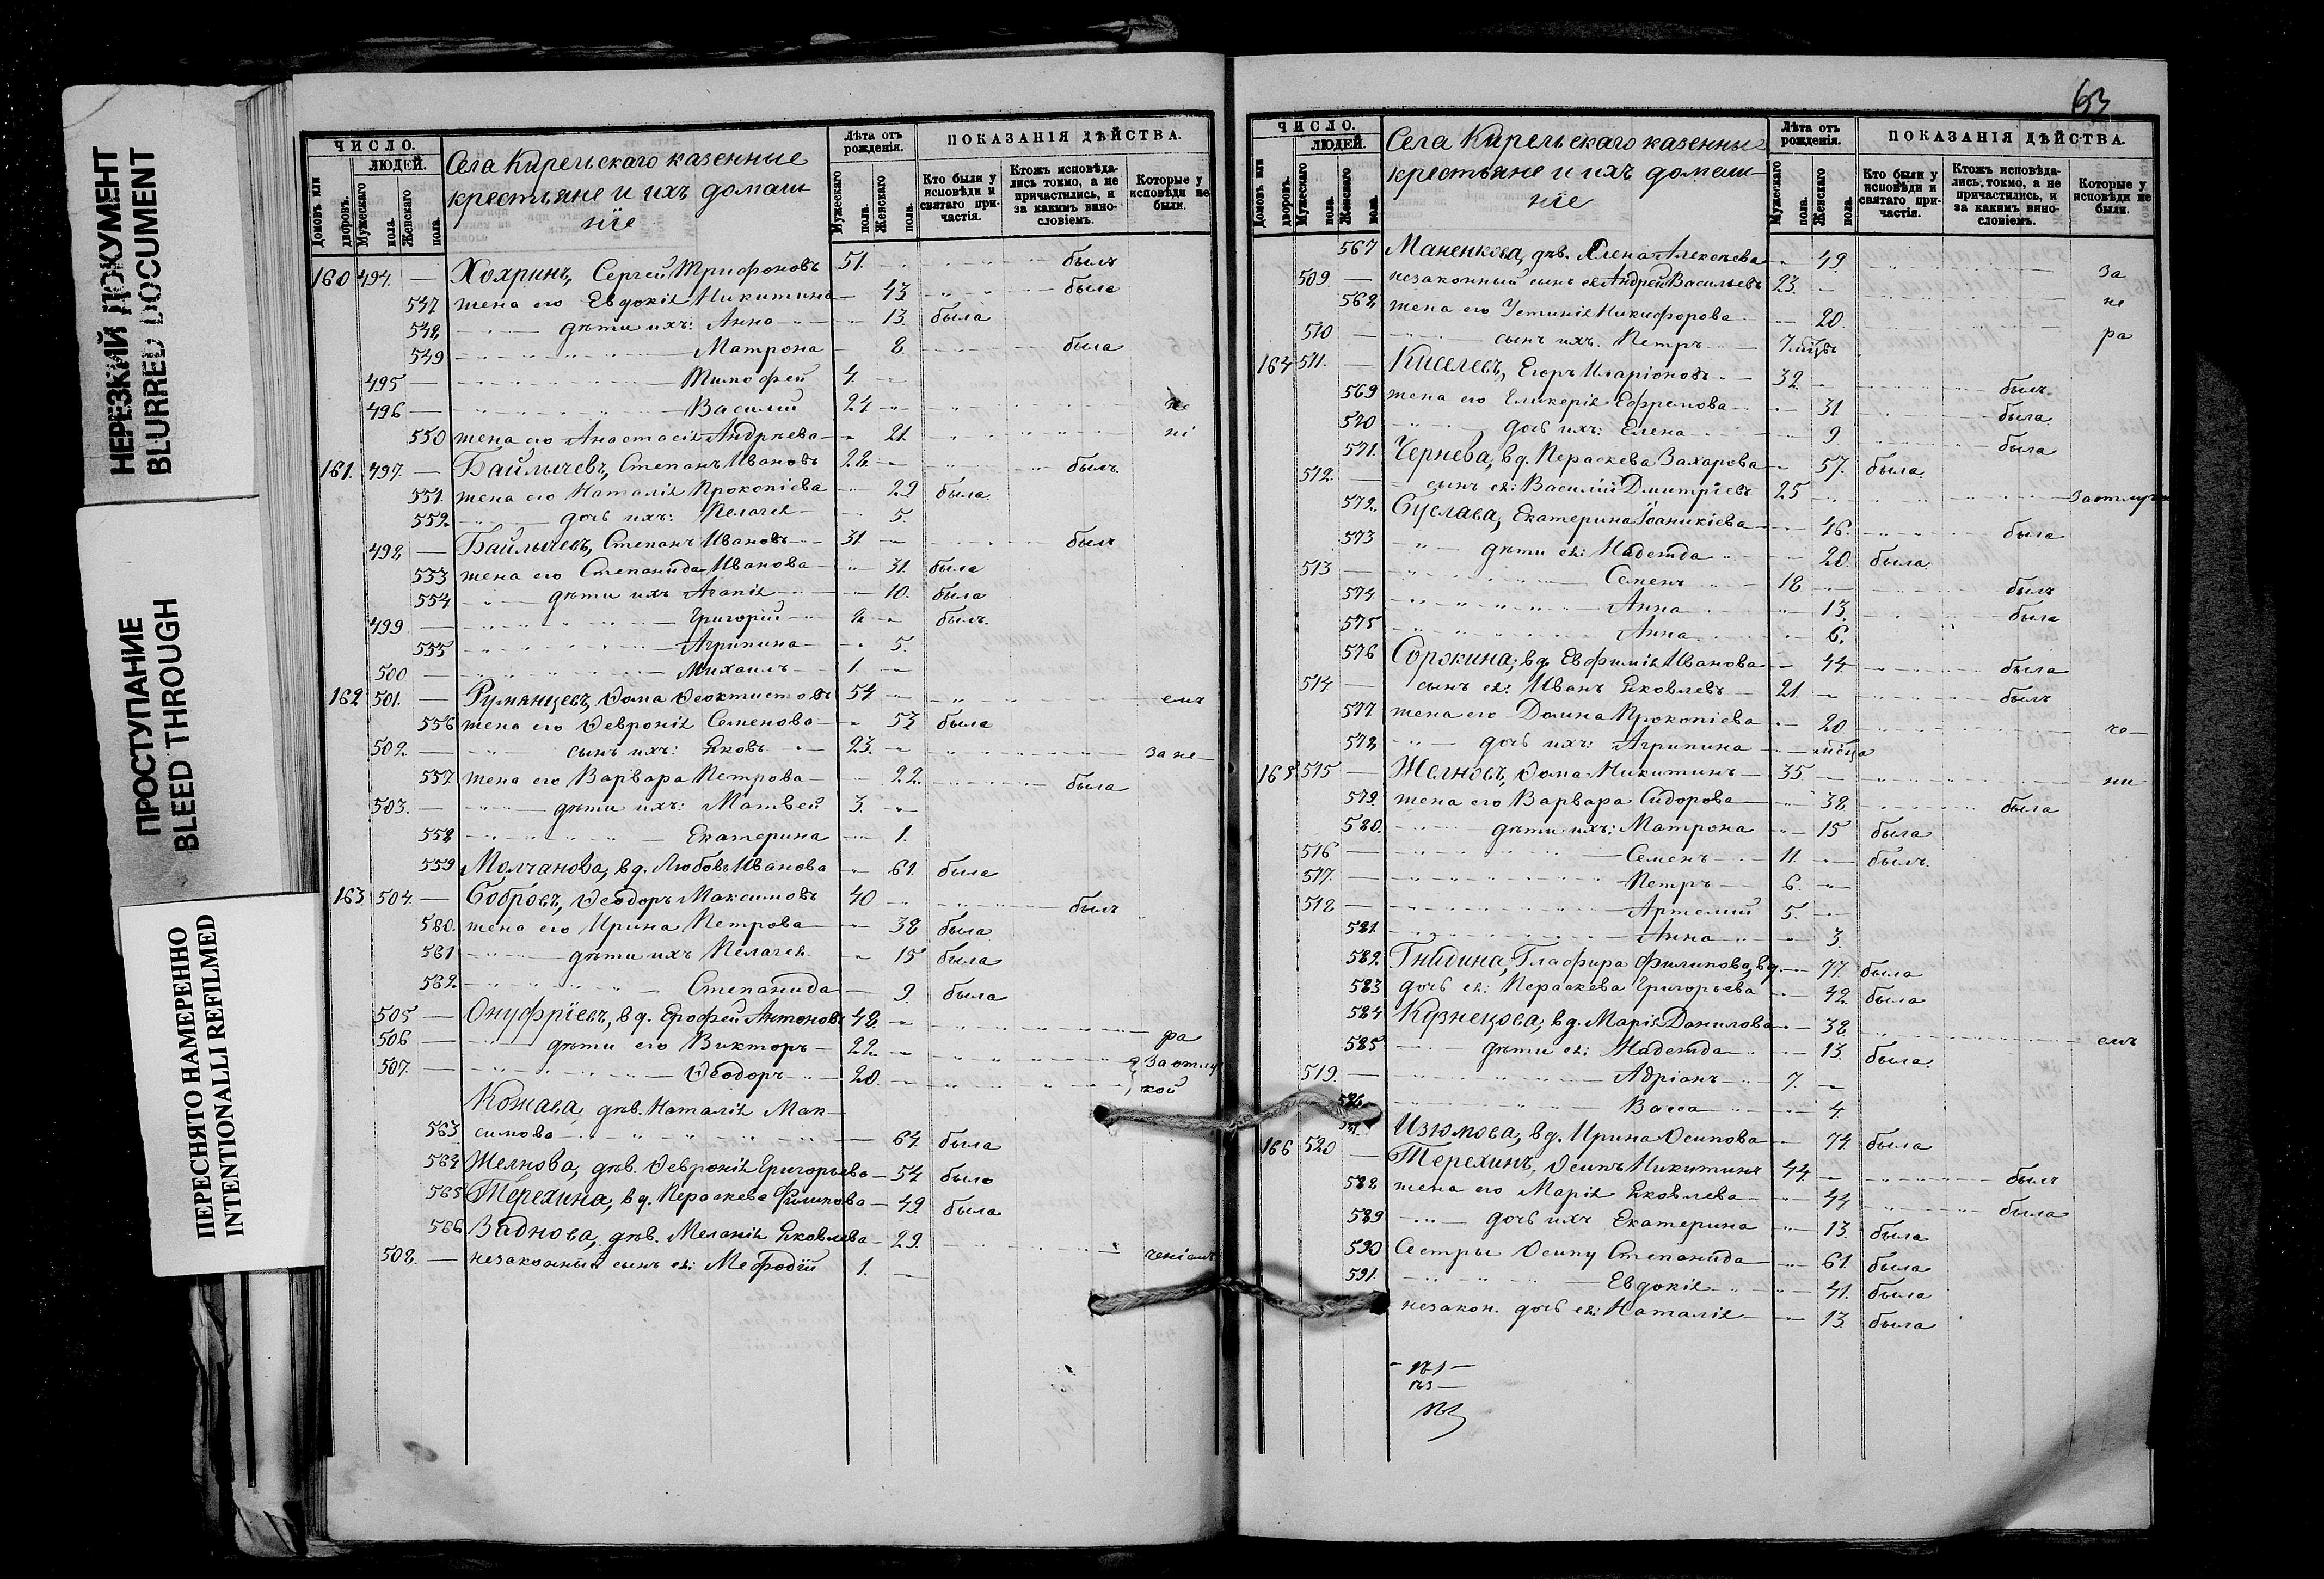 НЕРЕЗКИЙ ДОКУМЕНТ
BLURRED DOCUMENT
ПРОСТУПАНИЕ
BLEED THROUGH
ПЕРЕСНЯТО НАМЕРЕННО
INTENTIONALLI REFILMED
ЧИСЛО.
ЛЮДЕЙ.
Домовъ или дворовъ.
Мужескаго пола.
Женскаго пола.
Села Кирельскаго казенные
крестьяне и ихъ домаш
ніе
Лѣта отъ рожденія.
Мужескаго пола.
Женскаго пола.
ПОКАЗАНІЯ ДѢЙСТВА.
Кто были у исповѣди и святаго причастія.
Ктожъ исповѣдались токмо, а не причастились, и за какимъ винословіемъ.
Которые у исповѣди не были.
160 494. — Хохринъ, Сергей Трифоновъ 51. былъ
547 жена его Евдокія Никитина — 43 была
548 дѣти ихъ: Анна 13. была
549 Матрона 8. была
495 — Тимофей 4.
496 — Василий 24 не
550 жена его Анастасія Андреева — 21. ні
161. 497. — Байлычевъ, Степанъ Ивановъ 28. былъ
551. жена его Наталія Прокопіева 29 была
552. дочь ихъ: Пелагея 5.
498 — Байлычевъ, Степанъ Ивановъ 31. былъ
553 жена его Степанида Иванова 31. была
554 дѣти ихъ Агапія 10. была
499 — Григорій 8 былъ
555 Агрипина 5.
500 — Михаилъ 1.
162 501. — Румянцевъ, Ѳома Ѳеоктистовъ 54 емъ
556 жена его Ѳевронія Семенова 53 была
502. — сынъ ихъ: Яковъ 23. за не
557. жена его Варвара Петрова 22. была
503. — дѣти ихъ: Матвей 3.
558 Екатерина 1.
559 Молчанова, вд. Любовь Иванова 61. была
163 504. — Бобровъ, Ѳеодоръ Максимовъ 40 былъ
580. жена его Ирина Петрова 38 была
561 дѣти ихъ Пелагея 15 была
562. Степанида 9. была
505 — Онуфріевъ, вд. Ерофей Антоновъ 48. ра
506 — дѣти его Викторъ 22. За отлу
507. — Ѳеодоръ 20. кой
Кожава, дѣв. Наталія Мак-
563 симова 64. была
564 Желнова, дѣв. Ѳевронія Григорьева — 54 была
565 Терехина, вд. Параскева Филипова — 49. была
566 Заднова, дѣв. Меланія Яковлева — 29. ченіемъ
508. — незаконный сынъ ея: Мефодій 1.
63
ЧИСЛО.
ЛЮДЕЙ.
Домовъ или дворовъ.
Мужескаго пола.
Женскаго пола.
Села Кирельскаго казенные
крестьяне и ихъ домаш-
ніе
Лѣта отъ рожденія.
Мужескаго пола.
Женскаго пола.
ПОКАЗАНІЯ ДѢЙСТВА.
Кто были у исповѣди и святаго причастія.
Ктожъ исповѣдались токмо, а не причастились, и за какимъ винословіемъ.
Которые у исповѣди не были.
567 Маненкова, дѣв. Елена Алексѣева 49. За
509 — незаконный сынъ ея Андрей Васильевъ 23. не
568 жена его Устинія Никифорова 20. ра
510 — сынъ ихъ. Петръ 7 мѣцъ
164 511. — Киселевъ, Егоръ Иларіоновъ 32 былъ
569 жена его Гликерія Ефремова 31 была
570 дочь ихъ: Елена 9 была
571. Чернева, вд. Параскева Захарова 57. была
512. — сынъ ея: Василій Дмитріевъ 25 За отлуч
572. Суслава, Екатерина Іоаникіева 46. была
573 дѣти ея: Надежда 20. была
513 — Семенъ 18 былъ
574 Анна 13. была
575 Анна 6.
576 Сорокина, вд. Евфимія Иванова 44. была
514 — сынъ ея: Иванъ Яковлевъ 21. былъ
577 жена его Домна Прокопіева 20 че
578 дочь ихъ: Агрипина мѣца
165 515 — Желновъ, Ѳома Никитинъ 35 ни
579. жена его Варвара Сидорова 38 была
580. дѣти ихъ: Матрона 15 была
516 — Семенъ 11. былъ
517. — Петръ 6.
518 — Артемий 5.
581 Анна 3.
582. Гнидина, Глафира Филипова, вд. 77. была
583 дочь ея: Параскева Григорьева 42. была
584 Кузнецова, вд. Марія Данилова 38 емъ
585 дѣти ея: Надежда 13. была
519. — Адріанъ 7.
586 Васса 4
587 Изюмова, вд. Ирина Осипова 74. была
166 520 — Терехинъ, Осипъ Никитинъ 44. былъ
588 жена его Марія Яковлева 44 была
589 дочь ихъ Екатерина 13. была
590 Сестры Осипу Степанида 61. была
591. Евдокія 41. была
незакон. дочь ея: Наталія 13. была